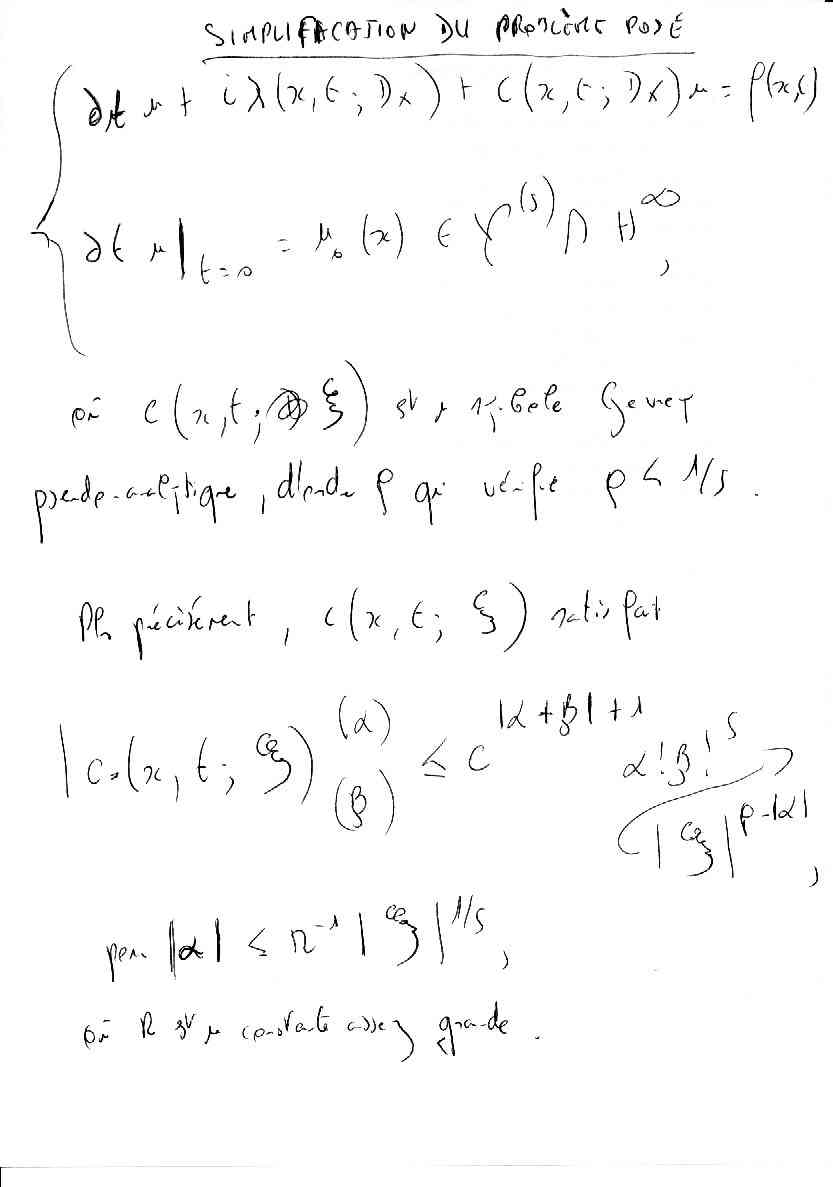 SIMPLIFICATION DU PROBLÈME POSÉ
∂t u + iλ(x,t; Dx) + C(x,t; Dx)u = f(x,t)
∂t u|t=0 = u₀(x) ∈ γ^(s) ∩ H^∞,
où c(x,t; ξ) est un symbole Gevrey
pseudo-analytique, d'ordre ρ qui vérifie ρ < 1/s.
Plus précisément, c(x,t; ξ) satisfait
|c.(x,t; ξ)^(α)_(β)| ≤ C^|α+β|+1 α!β!^s
|ξ|^ρ-|α|,
pour |α| ≤ R^-1 |ξ|^1/s,
où R est une constante assez grande.